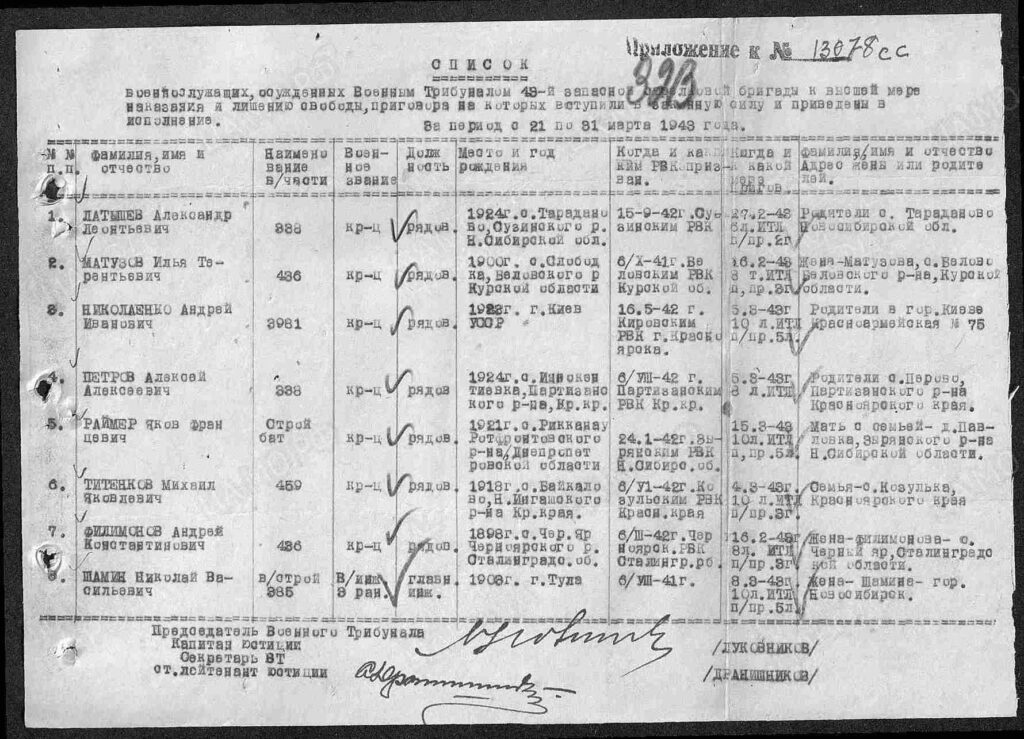 Приложение к № 13078сс
323
СПИСОК
военнослужащих, осужденных Военным Трибуналом 43-й запасной бригады к высшей мере
наказания и лишению свободы, приговора на которых вступили в силу и приведены в
исполнение.
За период с 21 по 31 марта 1943 года.
№ № п.п. фамилия, имя и отчество Наимено вание в/части Воен- ное звание Долж ность Место и год рождения Когда и ким РВК призван. Когда и к какой мере фамилия, имя и отчество Адрес жены или родите лей.
1. ЛАТЫШЕВ Александр 1924г. с. Таradано 15-9-42г. Су 27.2-43 Родители с. Тараданово
Леонтьевич 388 кр-ц рядов. во, Сузинского р. зинским РВК 8л. ИТЛ Новосибирской обл.
Н. Сибирской обл. п/пр. 2г
2. МАТУЗОВ Илья Те- 1900г. с. Слобод 6/X-41г. Бе 16.2-43 Жена-Матузова, с. Белово
рентьевич 436 кр-ц рядов. ка, Беловского р ловским РВК 8 т. ИТЛ Беловского р-на, Курской
Курской области Курской об. п, пр. 3г области.
3. НИКОЛАЕНКО Андрей г. Киев 16.5-42 г. 5.3-43г Родители в гор. Киеве
Иванович 3981 кр-ц рядов. УССР Кировским 10 л. ИТЛ Красноармейская № 75
РВК г. Красно п/пр. 5л.
ярска.
4. ПЕТРОВ Алексей 1924г. с. Инокен 6/УШ-42 г. 5.3-43г. Родители с. Перово,
Алексеевич 338 кр-ц рядов тиевка, Партизанс Партизанским 8 л. ИТЛ Партизанского р-на
кого р-на, Кр. кр. РВК Кр. кр. Красноярского края.
5. РАЙМЕР Яков фран Строй 1921г. с. Рикканау 15.3-43 Мать с семьей- д. Пав-
цевич бат кр-ц рядов. Ротфронтовского 24.1-42г. Зы- 10л. ИТЛ ловка, Зырянского р-на
р-на, Днепропет рянским РВК п/пр. 5л. Н. Сибирской области.
ровской области Н. Сибирс. об.
6. ТИТЕНКОВ Михаил 459 кр-ц рядов. 1918г. с. Байкало 6/У1-42г. Ко 4.3-43г. Семья-с. Козулька,
Яковлевич во, Н. Ингашского зульским РВК 10 л. ИТЛ Красноярского края
р-на Кр. края. Красн. края п/пр. 3г.
7. ФИЛИМОНОВ Андрей 1898г. с. Чер. Яр 6/Ш-42г. Чер 16.2-43г Жена-филимонова- с.
Константинович 436 кр-ц рядов. Черноярского р. ноярск. РВК 8л. ИТЛ Черный яр, Сталинградс
Сталинградс. об. Сталингр. об. п/пр. 3г кой области.
8. ШАМИН Николай Ва- в/строй В/инж главн. 1903г. г. Тула 6/УШ-41г. 8.3-43г Жена- Шамина- гор.
сильевич 385 3 ран. инж. 10л. ИТЛ Новосибирск.
п/пр. 5л
Председатель Военного Трибунала
Капитан юстиции /ЛУКОВНИКОВ/
Секретарь ВТ
ст. лейтенант юстиции /ДРАНИШНИКОВ/